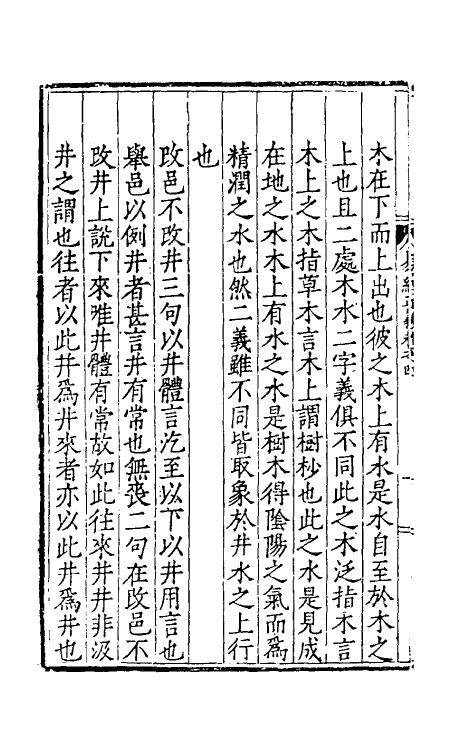 木在下而上出也彼之木上有水是水自至於木之
上也且二處木水二字義俱不同此之木泛指木言
木上之木指草木言木上謂樹杪也此之水是見成
在地之水木上有水之水是樹木得陰陽之氣而為
精潤之水也然二義雖不同皆取象於井水之上行
也
改邑不改井三句以井體言汔至以下以井用言也
舉邑以例井者甚言井有常也無喪二句在改邑不
改井上說下來唯井體有常故如此往來井井非汲
井之謂也往者以此井為井來者亦以此井為井也